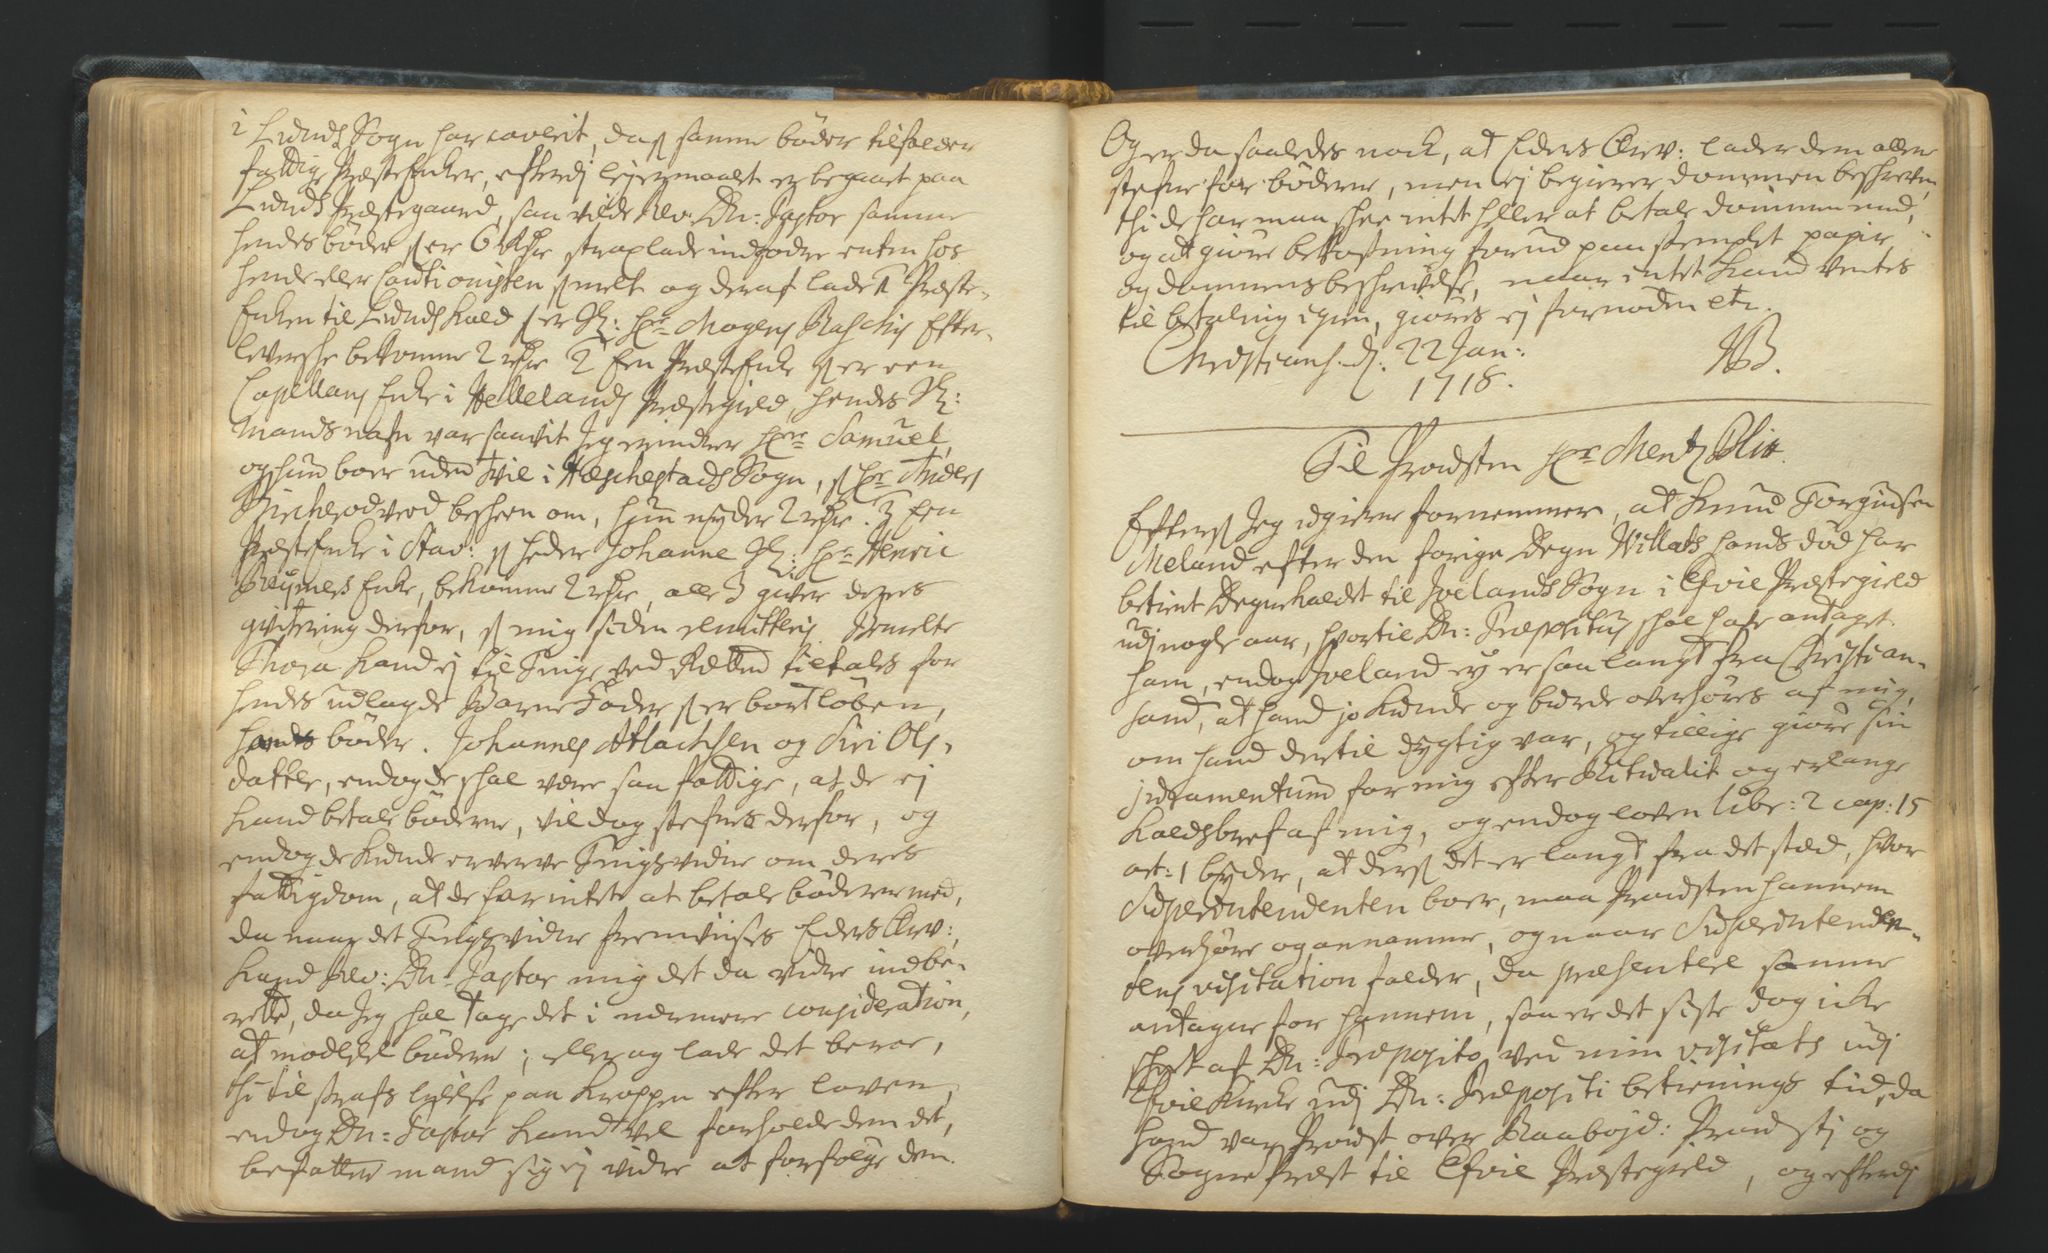 i Lunds Sogn har caverit, da s samme bøder tilfalder
fattige Præste Enker, efterdj lejermaalet er begaaet paa
Lunds Præstegaard, saa vilde Rev: Dn: Pastor samme
hendes bøder s er 6 Rdr strax lade indfodre enten hos
hende eller Cautionisten s melt og deraf lade 1 Præste-
Enken til Lunds Kald s er Sl: Hr Mogens Raschis Efter-
leverske bekomme 2 rdr 2 Een Præste Enke s er een
Capellans Enke i Hellelands Præstegield, hendes Sl:
Mands nafn var saavit Jeg erindrer Hr Samuel,
og hun boer uden tvil i Heschestads Sogn, s Hr Anders
Bircherod veed besheen om, hun nyder 2 rdr. 3 Een
Præste Enke i Stav: s heder Johanne Sl: Hr Henric
Enke, bekomme 2 rdr, alle 3 giver deres
qvitering derfor, s mig siden tilskikkes. Bemelte
Thora kand ej til Tinge ved Retten tiltales for
hendes udlagde Barne Fader s er bortløben,
hands bøder. Johannes Atlachsen og Siri Ols-
datter, endog de skal være saa fattige, at de ej
kand betale bøderne, vil dog stefnes derfor, og
endog de kunde erverve Tingsvidne om deres
fattigdom, at de har intet at betale bøderne med,
da naar det Tingsvidne fremviises Eders Erv:,
kand Rev: Dn: Pastor mig det da vidre indbe-
rette, da Jeg skal tage det i nærmere consideration,
at moderere bøderne; eller og lade det beroe,
thi til straf lidelse paa Kroppen efter loven,
endog Dn: Pastor kand vel forholde dem det,
befatter mand sig ej vidre at forfølge dem.
Og er da saaledes nock, at Eders Erv: lader dem allene
stefne for bøderne, men ej begierer dommen beskreven,
thi de har maa skee intet heller at betale dommen med,
og at giøre bekostning forud paa stemplet papir
og dommens beskrivelse, naar intet kand ventes
til betaling igien, giøres ej fornøden etc.
Christians. d. 22 Jan:
1718.
Til Provsten Hr Mentz
Efters Jeg ugierne fornemmer, at Knud Torgiusen
Meland efter den forige Degn Willats hands død har
betient Degnekaldet til Ivelands Sogn i Efvie Præstegield
udj nogle aar, hvortil Dn: Præpositus skal have antaget
ham, endog Iveland ej er saa langt fra Christian-
sand, at hand jo kunde og burde overhøres af mig,
om hand dertil dygtig var, og tillige giøre sin
juramentum for mig efter Ritualit og erlange
Kaldsbref af mig, og endog loven libr: 2 cap: 15
art: 1 byder, at ders det er langt fra det sted, hvor
Superintendenten boer, maa Provsten hannem
overhøre og annamme, og naar Superintenden-
tens visitation falder, da præsentere samme
antagne for hannem, saa er det siste dog icke
skeet af Dn: Præposito ved min visitats udj
Efvie Kirke udj Dn: Præpositi betienings tid, da
hand var Provst over Raabøjd: Provstj og
Sogne Præst til Efvie Præstegield, og efterdj